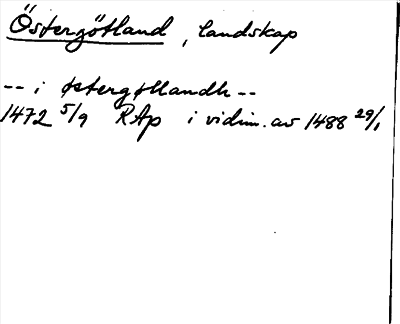 Östergötland, landskap
-- i østergøtlandh --
1472 5/9 RAp i vidim. av 1488 29/1